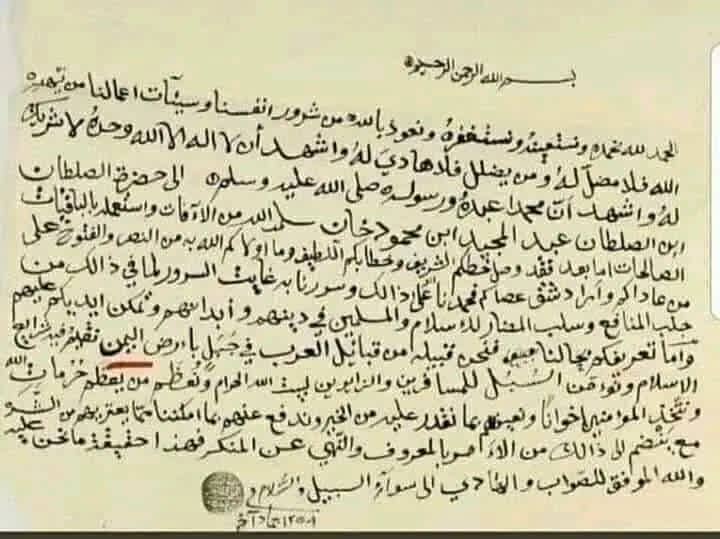 بسم الله الرحمن الرحيم
الحمد لله نحمده ونستعينه ونستغفره ونعوذ بالله من شرور انفسنا وسيئات اعمالنا من يهده
الله فلا مضل له ومن يضلل فلا هادي له واشهد أن لا اله الا الله وحده لا شريك
له واشهد ان محمدا عبده ورسوله صلى الله عليه وسلم الى حضرة الصلطان
ابن الصلطان عبد المجيد ابن محمود خان سلمه الله من الآفات واستعمله بالباقيات
الصالحات اما بعد فقد وصل خطكم الشريف وخطابكم اللطيف وما اولاكم الله به من النصر والفتوح على
من عاداكم فحمدنا الله على ذالك وسررنا به غايت السرور لما في ذالك من
جلب المنافع وسلب المضار للاسلام والمسلمين في دينهم وأبدانهم وتمكن ايديكم عليهم
واما تعريفكم بحالنا فنحن قبيله من قبائل العرب في جبل بارض اليمن نقيم فيه شرايع
الاسلام ونؤمن السبل للمسافرين والزايرين لبيت الله الحرام ونعظم من يعظم حرمات الله
ونتخذ المؤمنين اخوانا ونعينهم بما نقدر عليه من الخير وندفع عنهم بما امكننا مما يعتريهم من الشر
مع ما ينضم الى ذالك من الامر بالمعروف والنهي عن المنكر فهذا حقيقة ما نحن عليه
والله الموفق للصواب والهادي الى سوآء السبيل والسلام